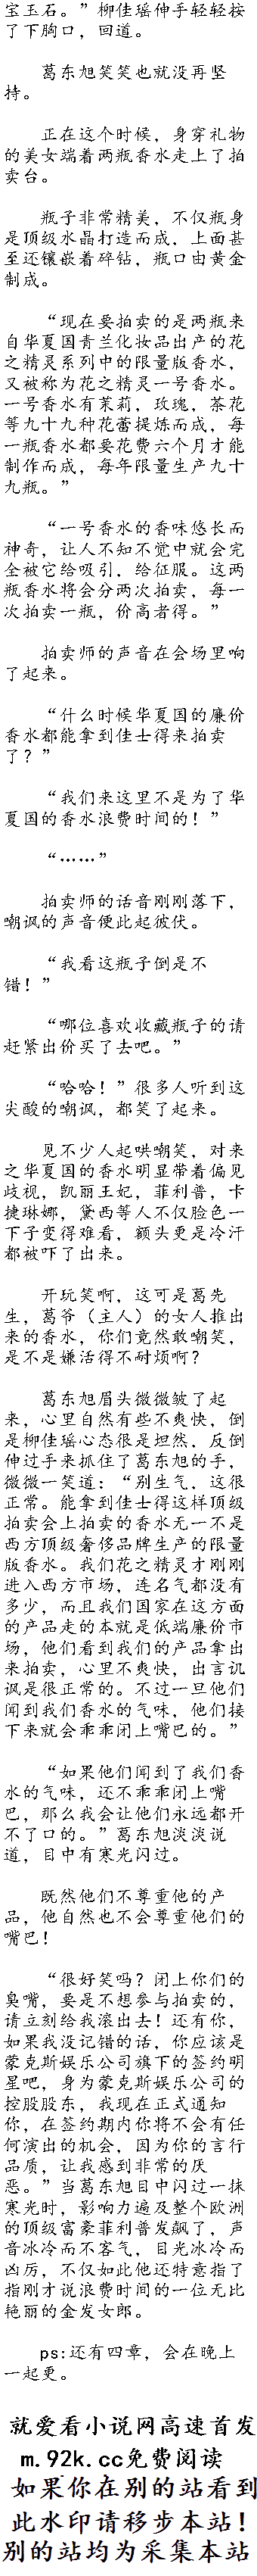 宝玉石。”柳佳瑶伸手轻轻按
了下胸口，回道。
葛东旭笑笑也就没再坚
持。
正在这个时候，身穿礼物
的美女端着两瓶香水走上了拍
卖台。
瓶子非常精美，不仅瓶身
是顶级水晶打造而成，上面甚
至还镶嵌着碎钻，瓶口由黄金
制成。
“现在要拍卖的是两瓶来
自华夏国青兰化妆品出产的花
之精灵系列中的限量版香水，
又被称为花之精灵一号香水。
一号香水有茉莉，玫瑰，茶花
等九十九种花蕾提炼而成，每
一瓶香水都要花费六个月才能
制作而成，每年限量生产九十
九瓶。”
“一号香水的香味悠长而
神奇，让人不知不觉中就会完
全被它给吸引，给征服。这两
瓶香水将会分两次拍卖，每一
次拍卖一瓶，价高者得。”
拍卖师的声音在会场里响
了起来。
“什么时候华夏国的廉价
香水都能拿到佳士得来拍卖
了？”
“我们来这里不是为了华
夏国的香水浪费时间的！”
“……”
拍卖师的话音刚刚落下，
嘲讽的声音便此起彼伏。
“我看这瓶子倒是不
错！”
“哪位喜欢收藏瓶子的请
赶紧出价买了去吧。”
“哈哈！”很多人听到这
尖酸的嘲讽，都笑了起来。
见不少人起哄嘲笑，对来
之华夏国的香水明显带着偏见
歧视，凯丽王妃，菲利普，卡
捷琳娜，黛西等人不仅脸色一
下子变得难看，额头更是冷汗
都被吓了出来。
开玩笑啊，这可是葛先
生，葛爷（主人）的女人推出
来的香水，你们竟然敢嘲笑，
是不是嫌活得不耐烦啊？
葛东旭眉头微微皱了起
来，心里自然有些不爽快，倒
是柳佳瑶心态很是坦然，反倒
伸过手来抓住了葛东旭的手，
微微一笑道：“别生气，这很
正常。能拿到佳士得这样顶级
拍卖会上拍卖的香水无一不是
西方顶级奢侈品牌生产的限量
版香水。我们花之精灵才刚刚
进入西方市场，连名气都没有
多少，而且我们国家在这方面
的产品走的本就是低端廉价市
场，他们看到我们的产品拿出
来拍卖，心里不爽快，出言讥
讽是很正常的。不过一旦他们
闻到我们香水的气味，他们接
下来就会乖乖闭上嘴巴的。”
“如果他们闻到了我们香
水的气味，还不乖乖闭上嘴
巴，那么我会让他们永远都开
不了口的。”葛东旭淡淡说
道，目中有寒光闪过。
既然他们不尊重他的产
品，他自然也不会尊重他们的
嘴巴！
“很好笑吗？闭上你们的
臭嘴，要是不想参与拍卖的，
请立刻给我滚出去！还有你，
如果我没记错的话，你应该是
蒙克斯娱乐公司旗下的签约明
星吧，身为蒙克斯娱乐公司的
控股股东，我现在正式通知
你，在签约期内你将不会有任
何演出的机会，因为你的言行
品质，让我感到非常的厌
恶。”当葛东旭目中闪过一抹
寒光时，影响力遍及整个欧洲
的顶级富豪菲利普发飙了，声
音冰冷而不客气，目光冰冷而
凶厉，不仅如此他还特意指了
指刚才说浪费时间的一位无比
艳丽的金发女郎。
ps:还有四章，会在晚上
一起更。
就爱看小说网高速首发
m.92k.cc免费阅读
如果你在别的站看到
此水印请移步本站！
别的站均为采集本站